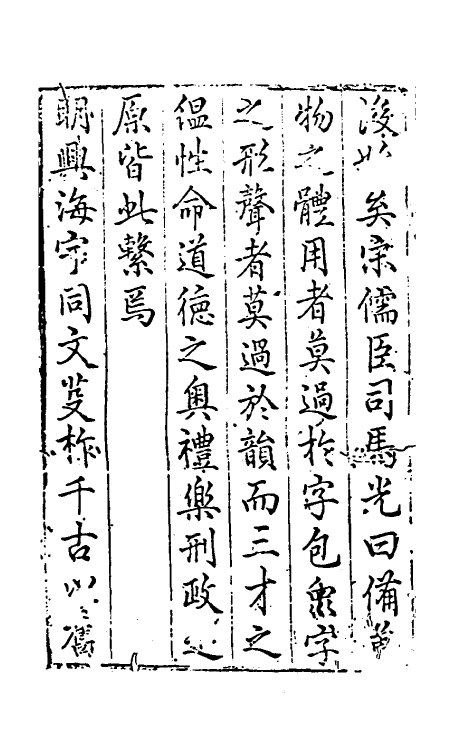 淩以矣宋儒臣司馬光曰備萬
物之體用者莫過於字包衆字
之形聲者莫過於韻而三才之
藴性命道德之奧禮樂刑政之
原皆此繫焉
明興海宇同文芟柞千古以之舊